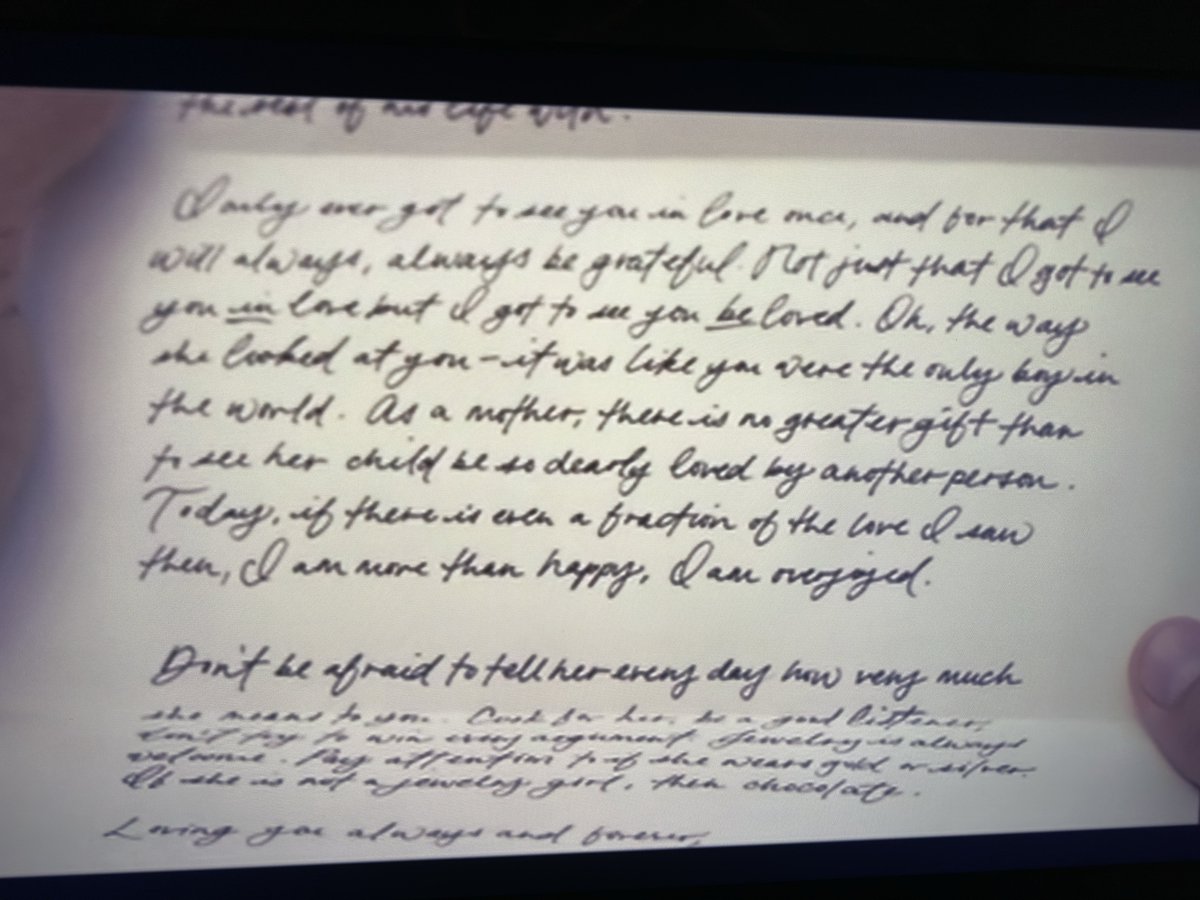 the rest of his life with.
I only ever got to see you in love once, and for that I
will always, always be grateful. Not just that I got to see
you in love but I got to see you be loved. Oh, the way
she looked at you - it was like you were the only boy in
the world. As a mother, there is no greater gift than
to see her child be so dearly loved by another person.
Today, if there is even a fraction of the love I saw
then, I am more than happy, I am overjoyed.
Don't be afraid to tell her every day how very much
she means to you. Cook for her, be a good listener,
don't try to win every argument. Jewelry is always
welcome. Pay attention to if she wears gold or silver.
If she is not a jewelry girl, then chocolate.
Loving you always and forever,